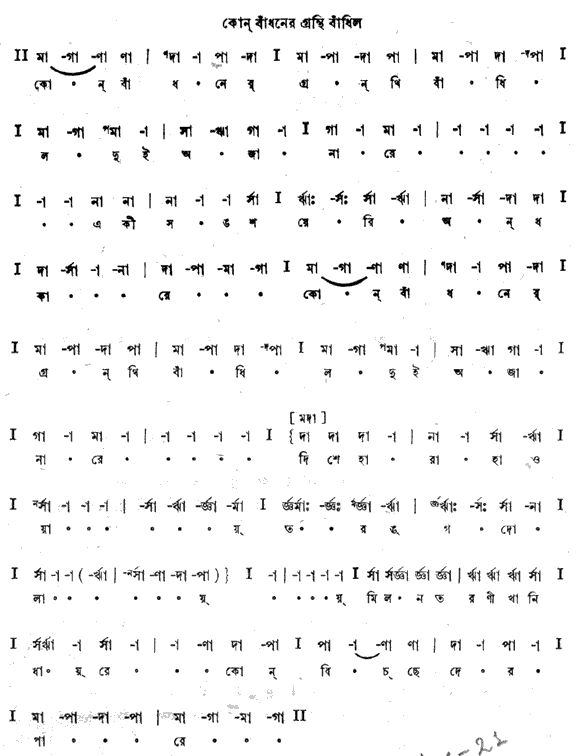 কোন্ বাঁধনের গ্রন্থি বাঁধিল
II মা -গা -ণা ণা | ণদা -া পা -দা I মা -পা -দা পা | মা -পা দা -পা I
কো • ন্ বাঁ ধ • নে র্ গ্র • ন্ থি বাঁ • ধি •
I মা -গা পমা -া | সা -ঋা গা -া I গা -া মা -া | -া -া -া -া I
ল • দু ই অ • জা • না • রে • • • • •
I -া -া না না | না -া -া র্সা I র্ঋাঃ -র্সঃ র্সা -র্ঋা | না -র্সা -দা দা I
• • এ কী স • ঙ শ য়ে • রি • অ • ন্ ধ
I দা -র্সা -া -না | দা -পা -মা -গা I মা -গা -ণা ণা | ণদা -া পা -দা I
কা • • • রে • • • কো • ন্ বাঁ ধ • নে র্
I মা -পা -দা পা | মা -পা দা -পা I মা -গা পমা -া | সা -ঋা গা -া I
গ্র • ন্ থি বাঁ • ধি • ল • দু ই অ • জা •
[ মদা ]
I গা -া মা -া | -া -া -া -া I {দা দা দা -া | না -া র্সা -র্ঋা I
না • রে • • • • • দি শে হা • রা • হা ও
I নর্সা -া -া -া | -র্সা -র্ঋা -র্জ্ঞা -র্মা I র্জ্ঞর্মাঃ -র্জ্ঞঃ র্জ্ঞা -র্ঋা | র্জ্ঞর্ঋাঃ -র্সঃ র্সা -না I
য়া • • • • • • য়্ ত • • র ঙ্ গ • দো •
I র্সা -া -া (-র্ঋা | -নর্সা -ণা -দা -পা )} I -া | -া -া -া -া I র্সা র্সর্জ্ঞা র্জ্ঞা র্জ্ঞা | র্ঋা র্ঋা র্ঋা র্সা I
লা • • • • • • য়্ • • • • য়্ মি ল • ন ত র ণী খা নি
I র্সর্ঋা -া র্সা -া | -া -ণা দা -পা I পা -া -ণা ণা | দা -া পা -া I
ধা • য়্ রে • • • কো ন্ বি • চ্ ছে দে • র •
I মা -পা -দা -পা | মা -গা -মা -গা II
পা • • • রে • • •